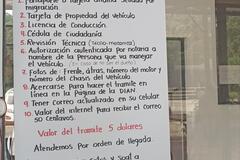 migración
2. Tarjeta de Propiedad del Vehículo
3. Licencia de Conducción
4. Cédula de Ciudadanía
5. Revisión Técnica
6. Autorización autenticada por notaria a
nombre de la persona que va manejar
el Vehículo.
7. Fotos de: Frente, atras, número del motor y
número del chasis del Vehículo.
8. Acercarse para hacer el tramite en
línea en la Página de la DIAN
9. Tener correo actualizado en su celular
10. Valor del internet para recibir el correo
50 centavos.
Valor del tramite 5 dolares
Atendemos Por orden de llegada.